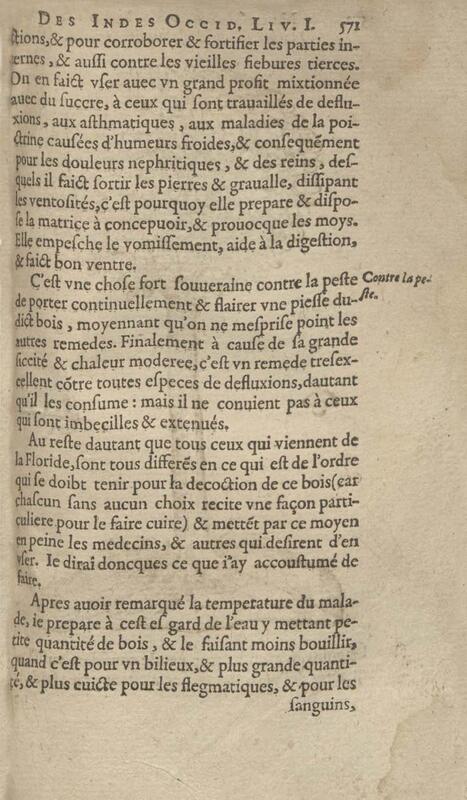 DES INDES OCCID. LIV. I. 571
ctions, & pour corroborer & fortifier les parties in-
ternes, & aussi contre les vieilles fiebures tierces.
On en faict vser auec vn grand profit mixtionnée
auec du succre, à ceux qui sont trauaillés de deflu-
xions, aux asthmatiques, aux maladies de la poi-
ctrine causées d'humeurs froides, & consequẽment
pour les douleurs nephritiques, & des reins, des-
quels il faict sortir les pierres & graualle, dissipant
les ventosités, c'est pourquoy elle prepare & dispo-
se la matrice à concepuoir, & prouocque les moys.
Elle empesche le vomissement, aide à la digestion,
& faict bon ventre.
C'est vne chose fort souueraine contre la peste
Contre la pe-
ste.
de porter continuellement & flairer vne piesse du-
dict bois, moyennant qu'on ne mesprise point les
autres remedes. Finalement à cause de sa grande
siccité & chaleur moderee, c'est vn remede tresex-
cellent cõtre toutes especes de defluxions, dautant
qu'il les consume: mais il ne conuient pas à ceux
qui sont imbecilles & extenués.
Au reste dautant que tous ceux qui viennent de
la Floride, sont tous differẽs en ce qui est de l'ordre
qui se doibt tenir pour la decoction de ce bois (car
chascun sans aucun choix recite vne façon parti-
culiere pour le faire cuire) & mettẽt par ce moyen
en peine les medecins, & autres qui desirent d'en
vser. Ie dirai doncques ce que i'ay accoustumé de
faire.
Apres auoir remarqué la temperature du mala-
de, ie prepare à cest esgard de l'eau y mettant pe-
tite quantité de bois, & le faisant moins bouillir,
quand c'est pour vn bilieux, & plus grande quanti-
té, & plus cuicte pour les flegmatiques, & pour les
sanguins,